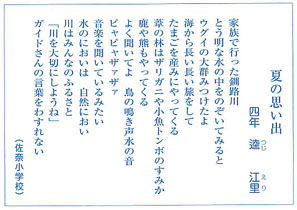 夏の思い出
四年 逵 江里
つじ えり
家族で行った釧路川
とう明な水の中をのぞいてみると
ウグイの大群みつけたよ
海から長い長い旅をして
たまごを産みにやってくる
葦の林はザリガニや小魚トンボのすみか
鹿や熊もやってくる
よく聞いてよ 鳥の鳴き声水の音
ピャピャザァザァ
音楽を聞いているみたい
水のにおいは 自然におい
川はみんなのふるさと
「川を大切にしようね」
ガイドさんの言葉をわすれない
(佐奈小学校)